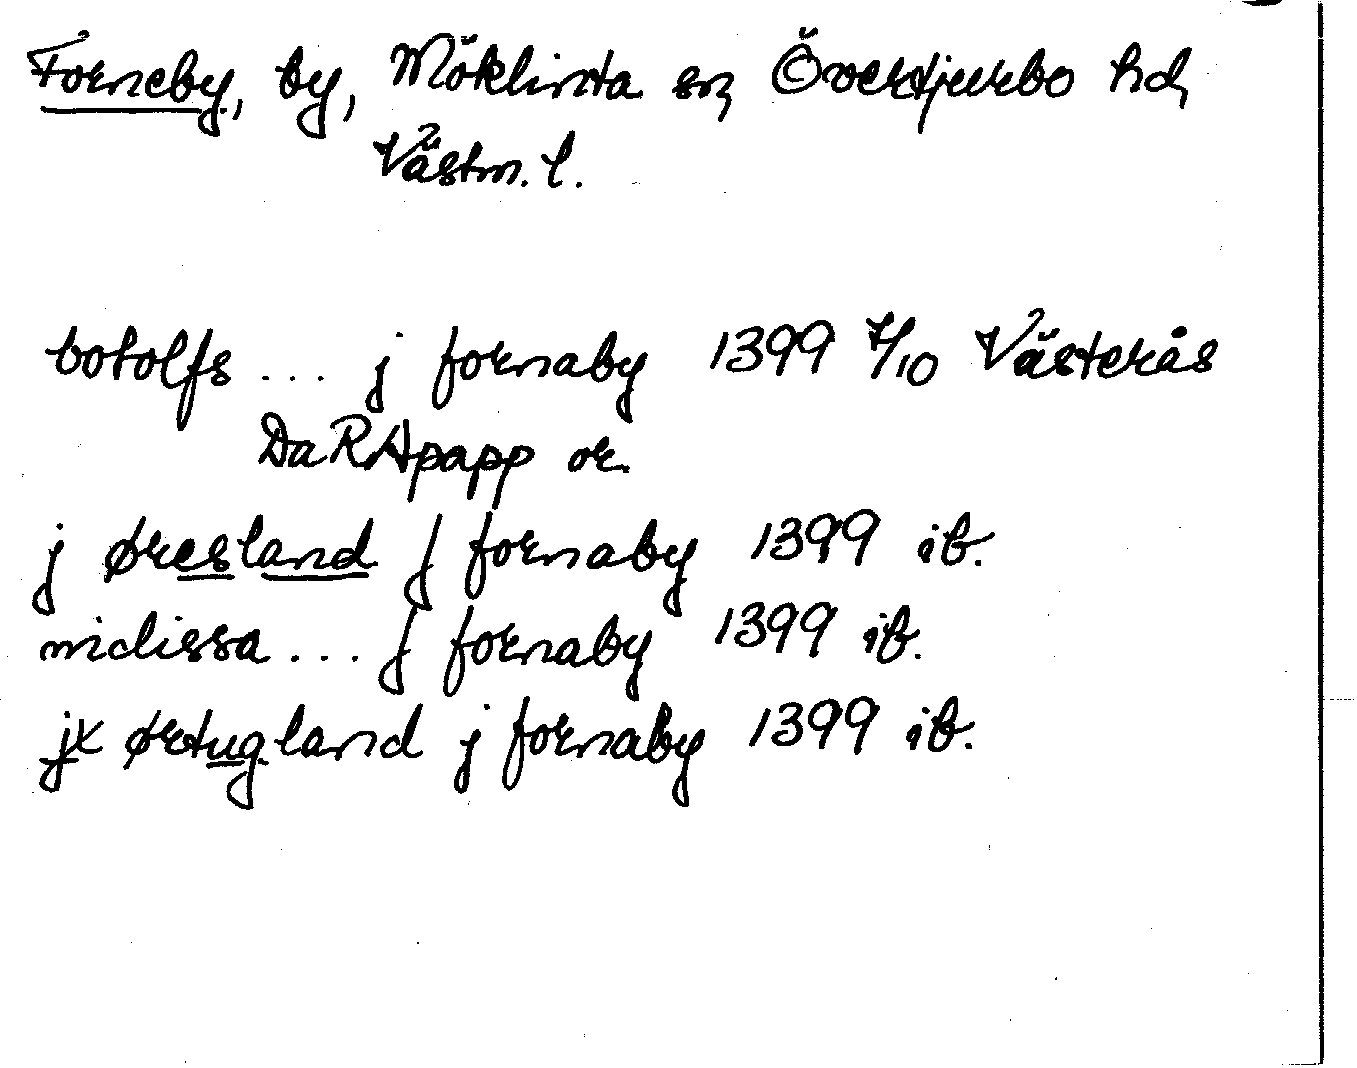 Forneby, by, Möklinta sn, Övertjurbo hd,
Västm. l.
botolfs ... j fornaby 1399 7/10 Västerås
DaRApapp or.
j øresland j fornaby 1399 ib.
nidissa ... j fornaby 1399 ib.
jx ørtugland j fornaby 1399 ib.